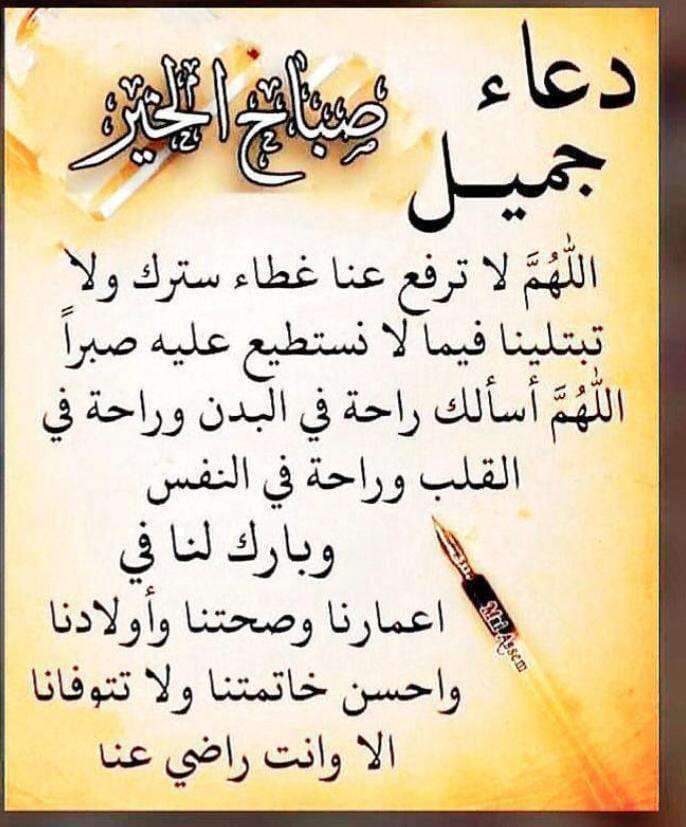 دعاء
جميل
صباح الخير
اللهُمَّ لا ترفع عنا غطاء سترك ولا
تبتلينا فيما لا نستطيع عليه صبراً
اللهُمَّ أسألك راحة في البدن وراحة في
القلب وراحة في النفس
وبارك لنا في
اعمارنا وصحتنا وأولادنا
واحسن خاتمتنا ولا تتوفانا
الا وانت راضي عنا